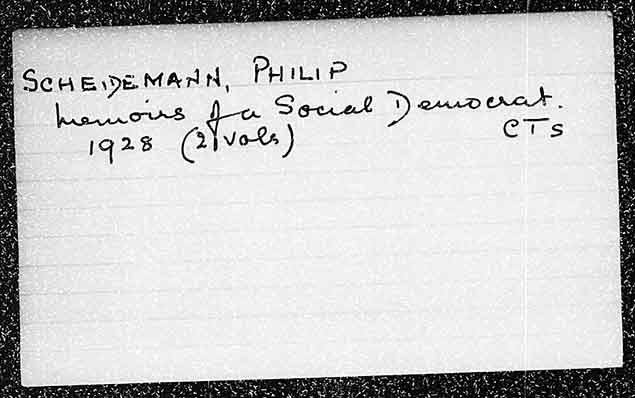 SCHEIDEMANN, PHILIP
Memoirs of a Social Democrat.
1928 (2 vols) CTS